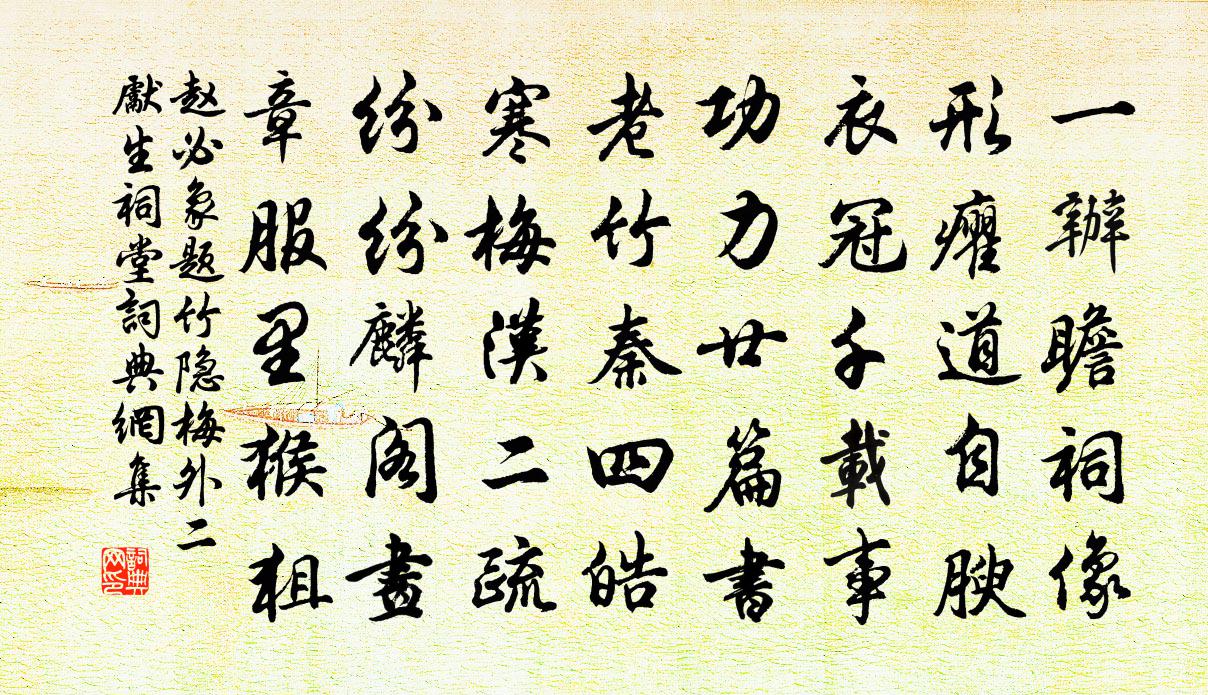 一辦瞻祠像
形癯道自腴
衣冠千載事
功力廿篇書
老竹秦四皓
寒梅漢二疏
纷纷麟阁畫
章服里猴狙
赵必象题竹隐梅外二
獻生祠堂詞典網集
詞典网印